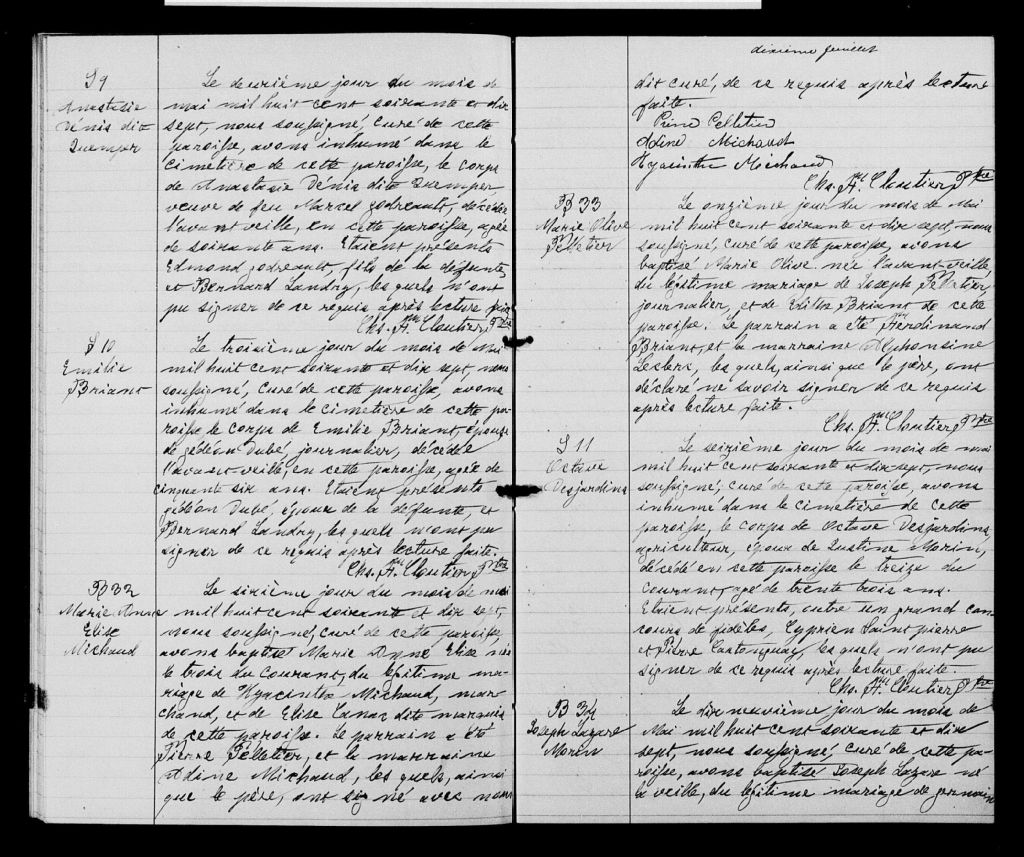 S 9
Anastasie
Dénis dit
Quemper
Le deuxième jour du mois de
mai mil huit cent soixante et dix
sept, nous soussigné, curé de cette
paroisse, avons inhumé dans le
cimetière de cette paroisse, le corps
de Anastasie Dénis dite Quemper,
veuve de feu Marcel godreault, décédée
l'avant veille, en cette paroisse, agée
de soixante ans. Etaient présents
Edmond godreault, fils de la défunte,
et Bernard Landry, les quels n'ont
pu signer de ce requis après lecture faite
Chs. A. Cloutier Ptre
S 10
Emilie
Briant
Le troisième jour du mois de Mai
mil huit cent soixante et dix sept, nous
soussigné, curé de cette paroisse, avons
inhumé dans le cimetière de cette pa-
roisse le corps de Emilie Briant, épouse
de gédéon Dubé, journalier, décédée
l'avant veille, en cette paroisse, agée de
cinquante six ans. Etaient présents
gédéon Dubé, époux de la défunte, et
Bernard Landry, les quels n'ont pu
signer de ce requis après lecture faite.
Chs. A. Cloutier Ptre
B 32
Marie Anne
Elise
Michaud
Le sixième jour du mois de mai
mil huit cent soixante et dix sept,
nous soussigné, curé de cette paroisse,
avons baptisé Marie Elise née
le trois du courant, du légitime ma-
riage de Hyacinthe Michaud, mar-
chand, et de Elise dite marquis
de cette paroisse. Le parrain a été
Pierre Pelletier, et la marraine
Adine Michaud, les quels, ainsi
que le père, ont signé avec nous
dixième feuillet
dit curé, de ce requis après lecture
faite.
Pierre Pelletier
Adine Michaud
Hyacinthe Michaud
Chs. A. Cloutier Ptre
B 33
Marie Olive
Pelletier
Le onzième jour du mois de Mai
mil huit cent soixante et dix sept, nous
soussigné, curé de cette paroisse, avons
baptisé Marie Olive née l'avant-veille,
du légitime mariage de Joseph Pelletier,
journalier, et de Edith Briant de cette
paroisse. Le parrain a été Ferdinand
Briant, et la marraine Alphonsine
Leclerc, les quels, ainsi que le père, ont
déclaré ne savoir signer de ce requis
après lecture faite.
Chs. A. Cloutier Ptre
S 11
Octave
Desjardins
Le seizième jour du mois de mai
mil huit cent soixante et dix sept, nous
soussigné, curé de cette paroisse, avons
inhumé dans le cimetière de cette
paroisse, le corps de Octave Desjardins,
agriculteur, époux de Justine Morin,
décédé en cette paroisse le treize du
courant, agé de trente trois ans.
Etaient présents, outre un grand con-
cours de fidèles, Cyprien Saint pierre
et Pierre Castonguay, les quels n'ont pu
signer de ce requis après lecture faite.
Chs. A. Cloutier Ptre
B 34
Joseph Lazare
Morin
Le dix neuvième jour du mois de
Mai mil huit cent soixante et dix
sept, nous soussigné, curé de cette pa-
roisse, avons baptisé Joseph Lazare né
la veille, du légitime mariage de germain